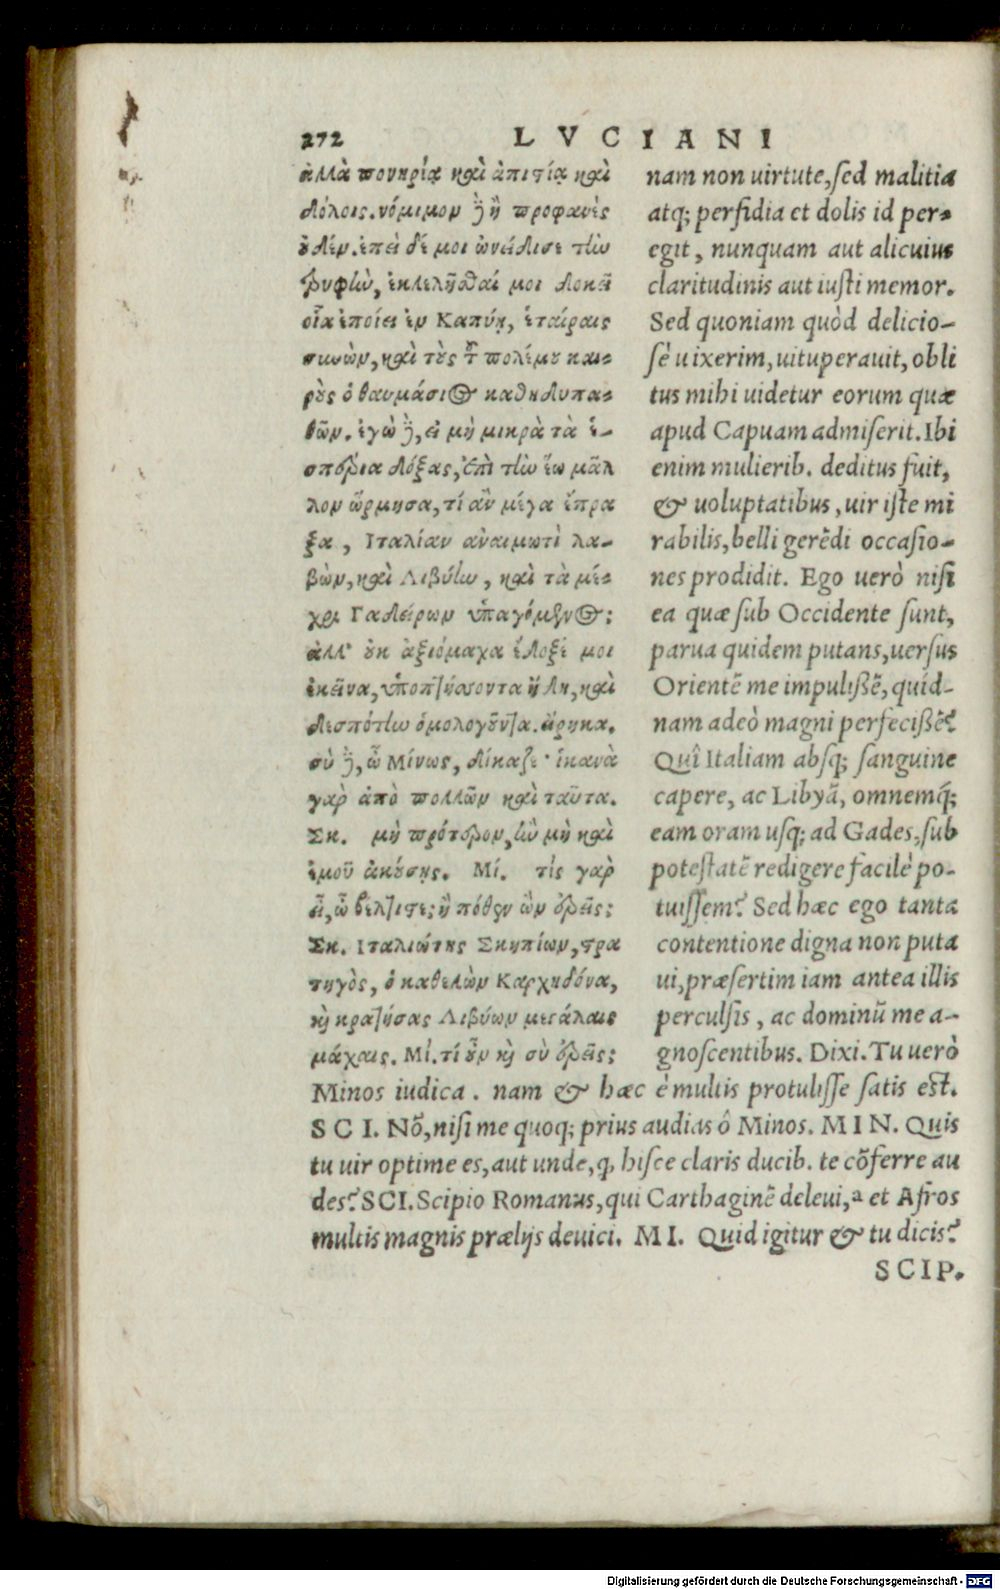 272 LVCIANI
ἀλλὰ πονηρίᾳ καὶ ἀπιστίᾳ καὶ
δόλοις. νόμιμον δὲ ἢ προφανὲς
οὐδέν. ἐπεὶ δέ μοι ὠνείδισε τὴν
τρυφὴν, ἐκλελῆσθαί μοι δοκεῖ
οἷα ἐποίει ἐν Καπύῃ, ἑταίραις
συνὼν, καὶ τοὺς τοῦ πολέμου και-
ροὺς ὁ θαυμάσιος καθηδυπα-
θῶν. ἐγὼ δὲ, εἰ μὴ μικρὰ τὰ ἑ-
σπέρια δόξας, ἐπὶ τὴν ἕω μᾶλ
λον ὥρμησα, τί ἂν μέγα ἔπρα
ξα, Ιταλίαν ἀναιμωτὶ λα-
βὼν, καὶ Λιβύην, καὶ τὰ μέ-
χρι Γαδείρων ὑπαγόμενος;
ἀλλ' οὐκ ἀξιόμαχα ἔδοξέ μοι
ἐκεῖνα, ὑποπτήσσοντα ἤδη, καὶ
δεσπότην ὁμολογοῦντα. εἴρηκα.
σὺ δὲ, ὦ Μίνως, δίκαζε· ἱκανὰ
γὰρ ἀπὸ πολλῶν καὶ ταῦτα.
Σκ. μὴ πρότερον, ἢν μὴ καὶ
ἐμοῦ ἀκούσῃς. Μί. τίς γὰρ
εἶ, ὦ βέλτιστε; ἢ πόθεν ὢν ἐρεῖς;
Σκ. Ιταλιώτης Σκηπίων, στρα
τηγὸς, ὁ καθελὼν Καρχηδόνα,
καὶ κρατήσας Λιβύων μεγάλαις
μάχαις. Μί. τί οὖν καὶ σὺ ἐρεῖς;
nam non uirtute, sed malitia
atq; perfidia et dolis id per-
egit, nunquam aut alicuius
claritudinis aut iusti memor.
Sed quoniam quòd delicio-
sè uixerim, uituperauit, obli
tus mihi uidetur eorum quæ
apud Capuam admiserit. Ibi
enim mulierib. deditus fuit,
& uoluptatibus, uir iste mi
rabilis, belli gerēdi occasio-
nes prodidit. Ego uerò nisi
ea quæ sub Occidente sunt,
parua quidem putans, uersus
Orientē me impulißē, quid-
nam adeò magni perfecißē?
Quî Italiam absq; sanguine
capere, ac Libyā, omnemq́;
eam oram usq; ad Gades, sub
potestatē redigere facilè po-
tuissem? Sed hæc ego tanta
contentione digna non puta
ui, præsertim iam antea illis
perculsis, ac dominū me a-
gnoscentibus. Dixi. Tu uerò
Minos iudica. nam & hæc è multis protulisse satis est.
SCI. Nō, nisi me quoq; prius audias ô Minos. MIN. Quis
tu uir optime es, aut unde, q, hisce claris ducib. te cōferre au
des? SCI. Scipio Romanus, qui Carthaginē deleui, a et Afros
multis magnis prælijs deuici. MI. Quid igitur & tu dicis?
SCIP.
Digitalisierung gefördert durch die Deutsche Forschungsgemeinschaft - DFG